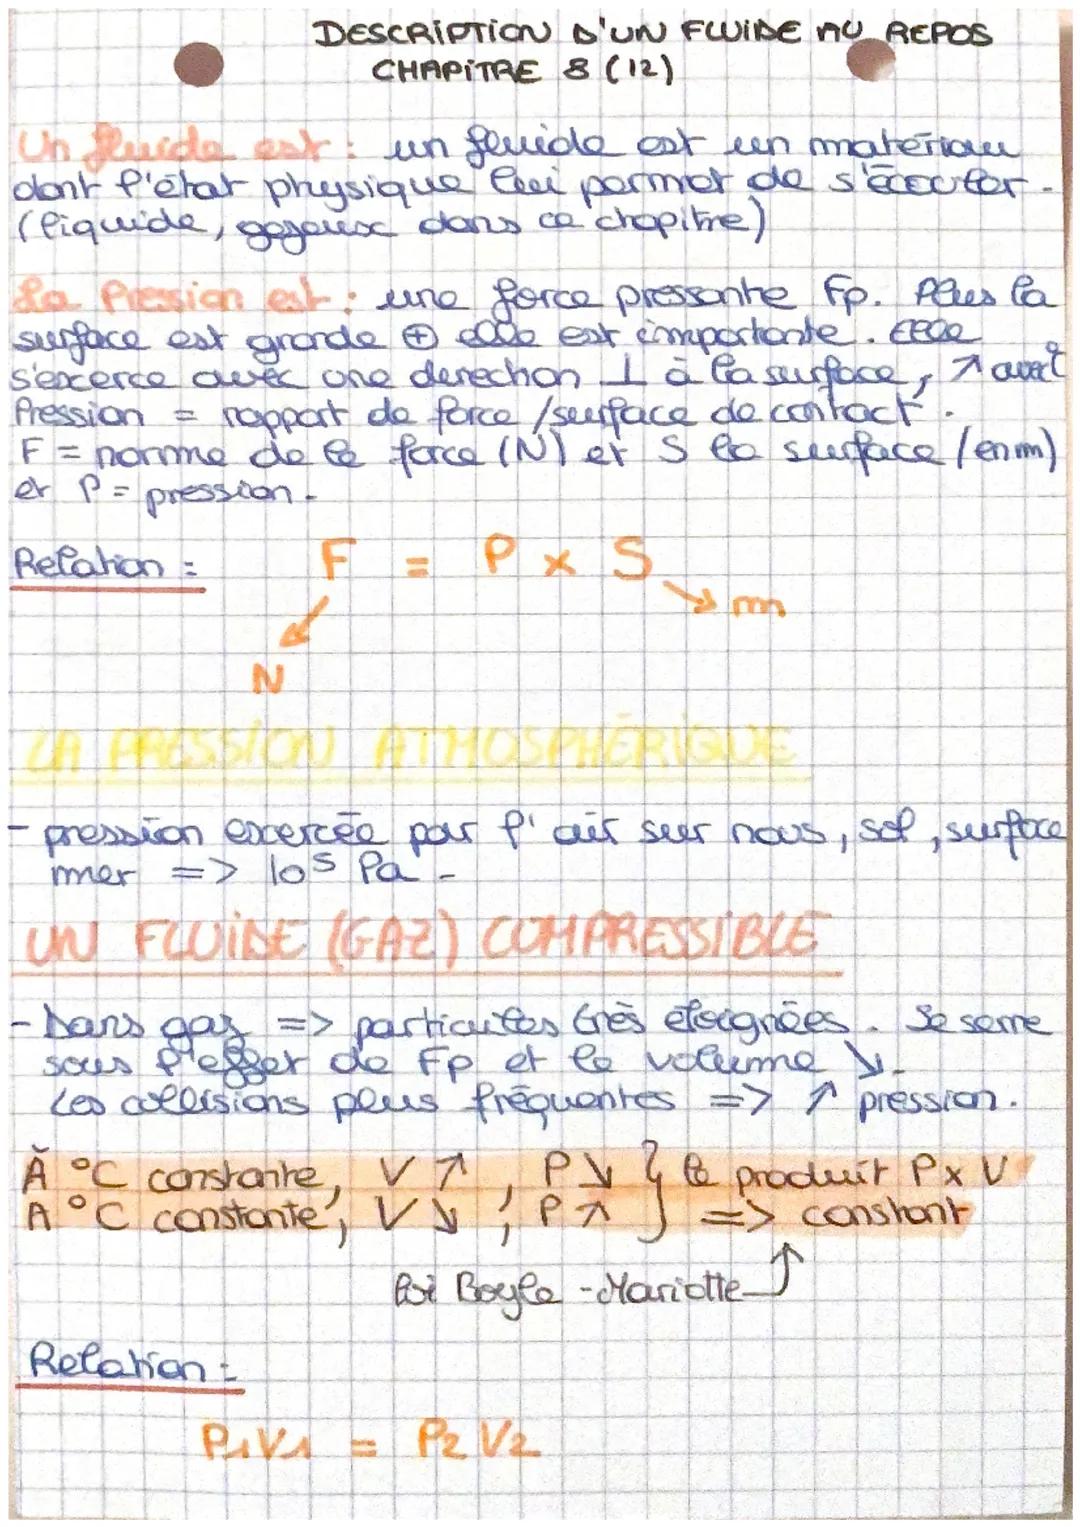 DESCRIPTION D'UN FLUIDE AU REPOS
CHAPITRE 8 (12)
Un fluide est : un fluide est un matériau
dont l'état physique lui permet de s'écouler.
(liquide, gazeux dans ce chapitre)
La Pression est : une force pressante Fp. Plus la
surface est grande ⊕ elle est importante. Elle
s'excerce avec une direction ⊥ à la surface, ↗ avec
Pression = rapport de force / surface de contact.
F = norme de la force (N) et S la surface (en m)
et P = pression.
Relation :
F = P x S
m
N
LA PRESSION ATMOSPHÉRIQUE
- pression excercée par l'air sur nous, sol, surface
mer => 10⁵ Pa -
UN FLUIDE (GAZ) COMPRESSIBLE
- Dans gaz => particules très éloignées. Se serre
sous l'effet de Fp et le volume ↘.
Les collisions plus fréquentes => ↗ pression.
À °C constante, V ↗, P ↘ } le produit P x V
A °C constante, V ↘, P ↗ } => constant
loi Boyle - Mariotte
Relation :
P1V1 = P2V2